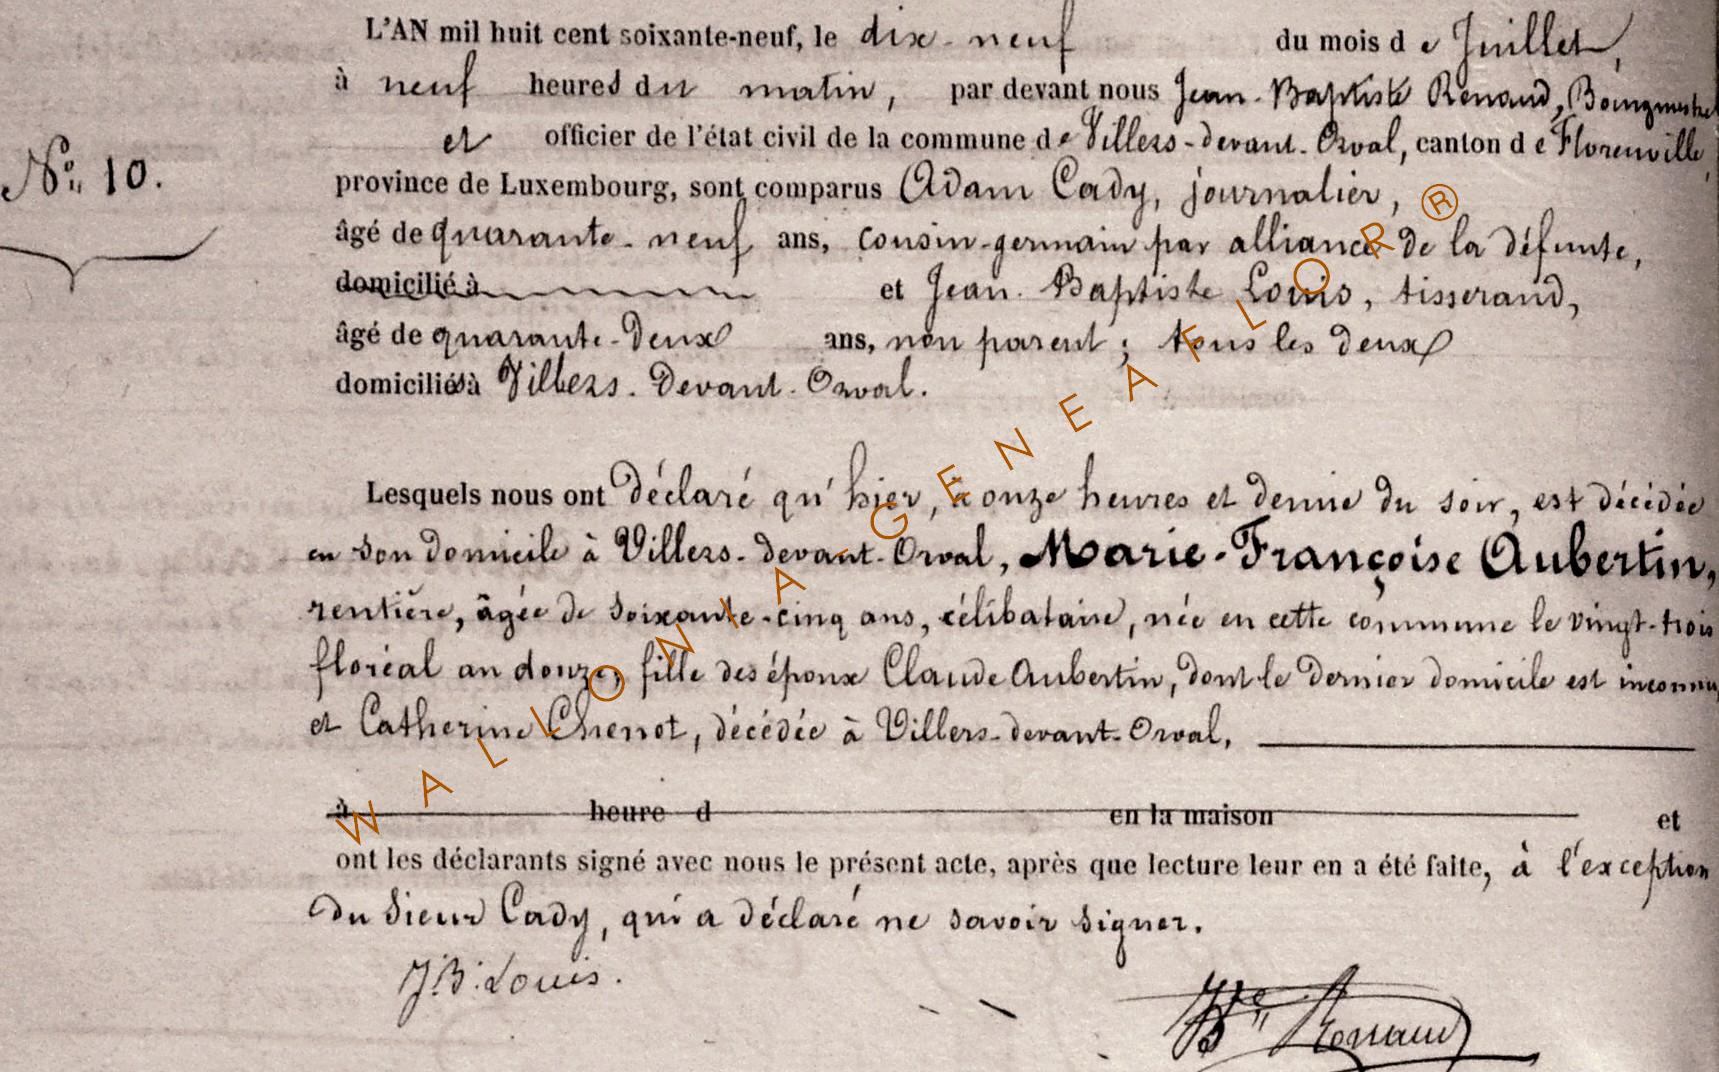 L'AN mil huit cent soixante-neuf, le dix-neuf du mois de Juillet,
à neuf heures du matin, par devant nous Jean-Baptiste Renaud, Bourgmestre
et officier de l'état civil de la commune de Villers-devant-Orval, canton de Florenville,
N° 10.
province de Luxembourg, sont comparus Adam Cady, journalier,
âgé de quarante-neuf ans, cousin-germain par alliance de la défunte,
domicilié à et Jean-Baptiste Louis, tisserand,
âgé de quarante-deux ans, non parent; tous les deux
domiciliés à Villers-Devant-Orval.
Lesquels nous ont déclaré qu'hier, à onze heures et demie du soir, est décédée
en son domicile à Villers-devant-Orval, Marie-Françoise Aubertin,
rentière, âgée de soixante-cinq ans, célibataire, née en cette commune le vingt-trois
floréal an douze, fille des époux Claude Aubertin, dont le dernier domicile est inconnu,
et Catherine Chenot, décédée à Villers-devant-Orval,
à heure d en la maison et
ont les déclarants signé avec nous le présent acte, après que lecture leur en a été faite, à l'exception
du sieur Cady, qui a déclaré ne savoir signer.
J.B. Louis.
Bte Renaud
WALLONIA-GENEAFLOR®